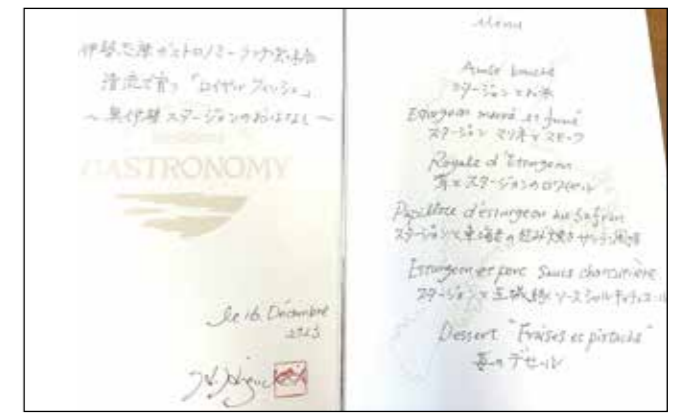 伊勢志摩ガストロノミーランチ賞味会
清流で育つ「ロイヤルフィッシュ」
～奥伊勢 スタージョンのおはなし～
GASTRONOMY
le 16 Décembre
2023
Menu
Amuse bouche
スタージョンとお米
Esturgeon mariné et fumé
スタージョン マリネ スモーク
Royale d'Esturgeon
スタージョンのロワイヤル
Papillote d'esturgeon au Safran
スタージョンと 包み焼き サフラン風味
Esturgeon et porc Sauce charcutière
スタージョンと 豚 ソースシャルキュティエール
Dessert "Fraises et pistache"
苺のデセール